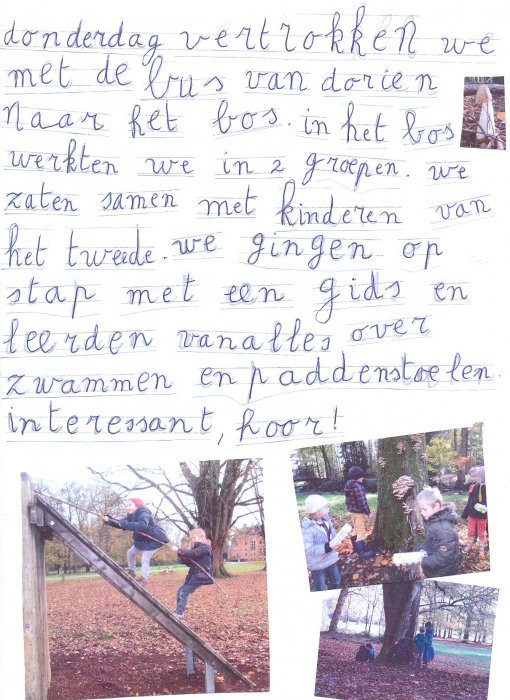 donderdag vertrokken we
met de bus van dorien
Naar het bos. in het bos
werkten we in 2 groepen. we
zaten samen met kinderen van
het tweede. we gingen op
stap met een gids en
leerden vanalles over
zwammen en paddenstoelen.
interessant, hoor!